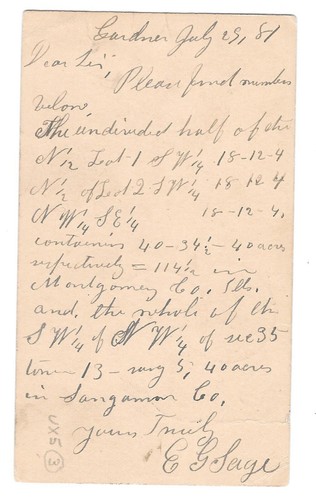 Gardner July 29, 81
Dear Sir,
Please find numbers
below,
The undivided half of the
N 1/2 Lot 1 S W 1/4 18-12-4
N 1/2 of Lot 2 S W 1/4 18 12 4
N W 1/4 S E 1/4 18-12-4,
containing 40-34 1/2-40 acres
respectively = 114 1/2 in
Montgomery Co. Ills.
and, the whole of the
S W 1/4 of N W 1/4 of sec 35
town 13 - rang 5, 40 acres
in Sangamon Co,
Yours Truly
E G Sage
UX5 3